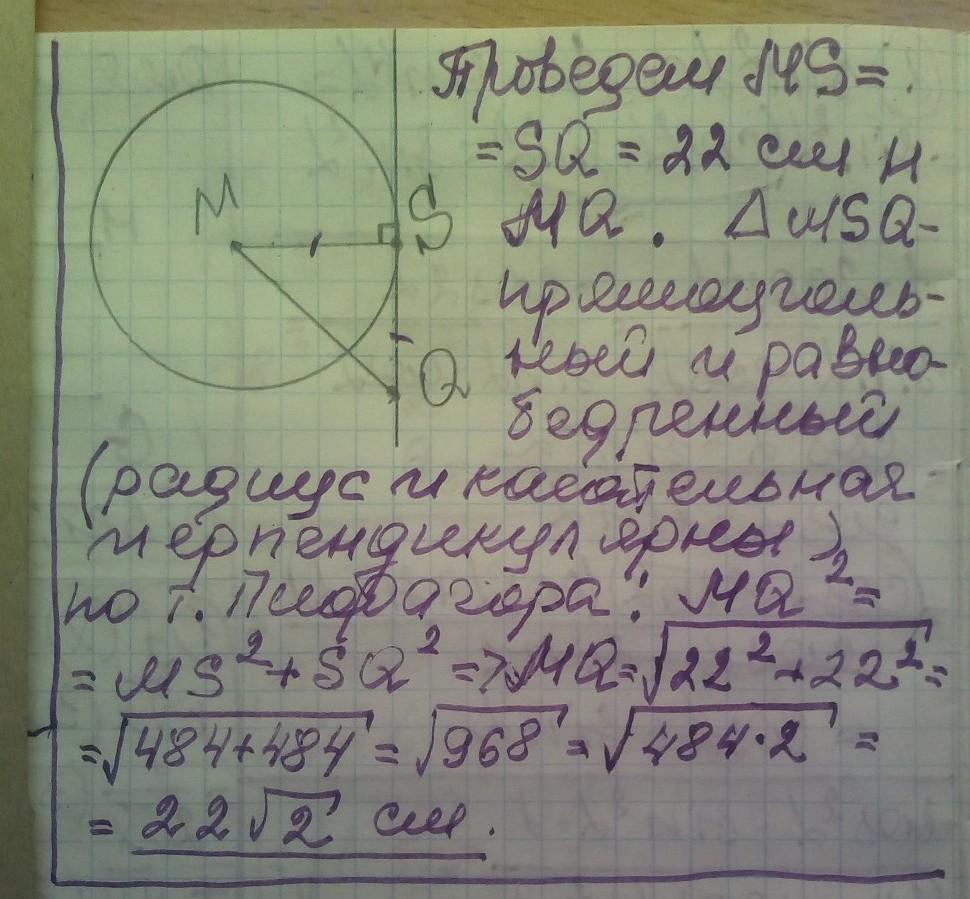 Проведем MS=
=SQ = 22 см и
MQ. △MSQ-
прямоуголь-
ный и равно-
бедренный
(радиус и касательная
перпендикулярны)
по т. Пифагора: MQ²=
= MS²+SQ² => MQ=√22²+22²=
=√484+484 = √968 = √484·2 =
= 22√2 см.
M
S
Q